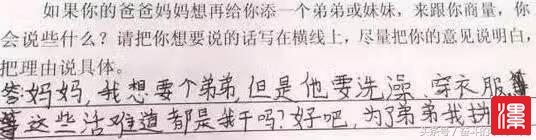 如果你的爸爸妈妈想再给你添一个弟弟或妹妹，来跟你商量，你
会说些什么？请把你想要说的话写在横线上，尽量把你的意见说明白，
把理由说具体。
答妈妈，我想要个弟弟，但是他要洗澡、穿衣服等
等这些活难道都是我干吗？好吧，为了弟弟我拼
漯
头条号